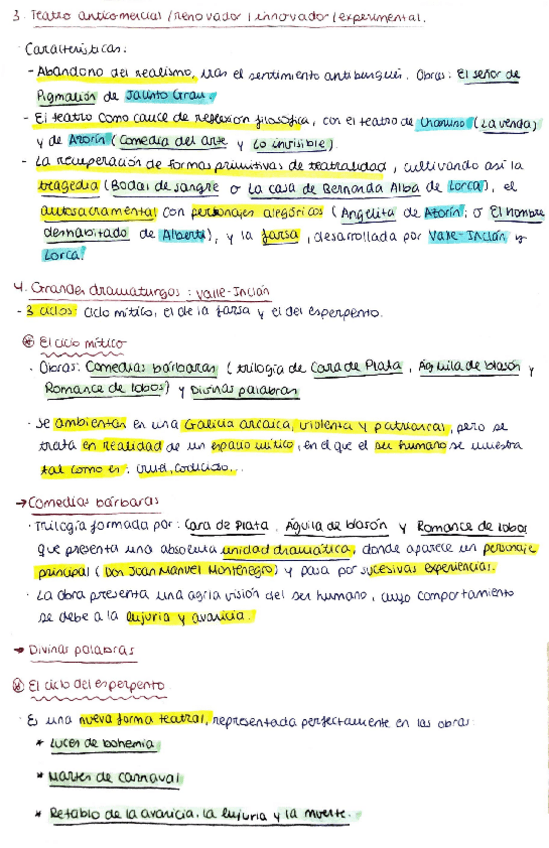 3. Teatro anticomercial / renovador / innovador / experimental.
Características:
- Abandono del realismo, tras el sentimiento antiburgués. Obras: El señor de
Pigmalión de Jacinto Grau.
- El teatro como cauce de reflexión filosófica, con el teatro de Unamuno (La venda)
y de Azorín (Comedia del arte y Lo invisible).
- La recuperación de formas primitivas de teatralidad, cultivando así la
tragedia (Bodas de sangre o La casa de Bernarda Alba de Lorca), el
autosacramental con personajes alegóricos (Angelita de Azorín; o El hombre
deshabitado de Alberti), y la farsa, desarrollada por Valle-Inclán y
Lorca.
4. Grandes dramaturgos: Valle-Inclán
- 3 ciclos: Ciclo mítico, el de la farsa y el del esperpento.
El ciclo mítico
· Obras: Comedias bárbaras (trilogía de Cara de Plata, Águila de blasón y
Romance de lobos) y Divinas palabras
· Se ambientan en una Galicia arcaica, violenta y patriarcal, pero se
trata en realidad de un espacio mítico, en el que el ser humano se muestra
tal como es: cruel, codicioso...
→ Comedias bárbaras
· Trilogía formada por: Cara de Plata, Águila de blasón y Romance de lobos
que presenta una absoluta unidad dramática, donde aparece un personaje
principal (Don Juan Manuel Montenegro) y pasa por sucesivas experiencias.
· La obra presenta una agria visión del ser humano, cuyo comportamiento
se debe a la lujuria y avaricia.
→ Divinas palabras
El ciclo del esperpento
· Es una nueva forma teatral, representada perfectamente en las obras:
* Luces de bohemia
* Martes de carnaval
* Retablo de la avaricia, la lujuria y la muerte.